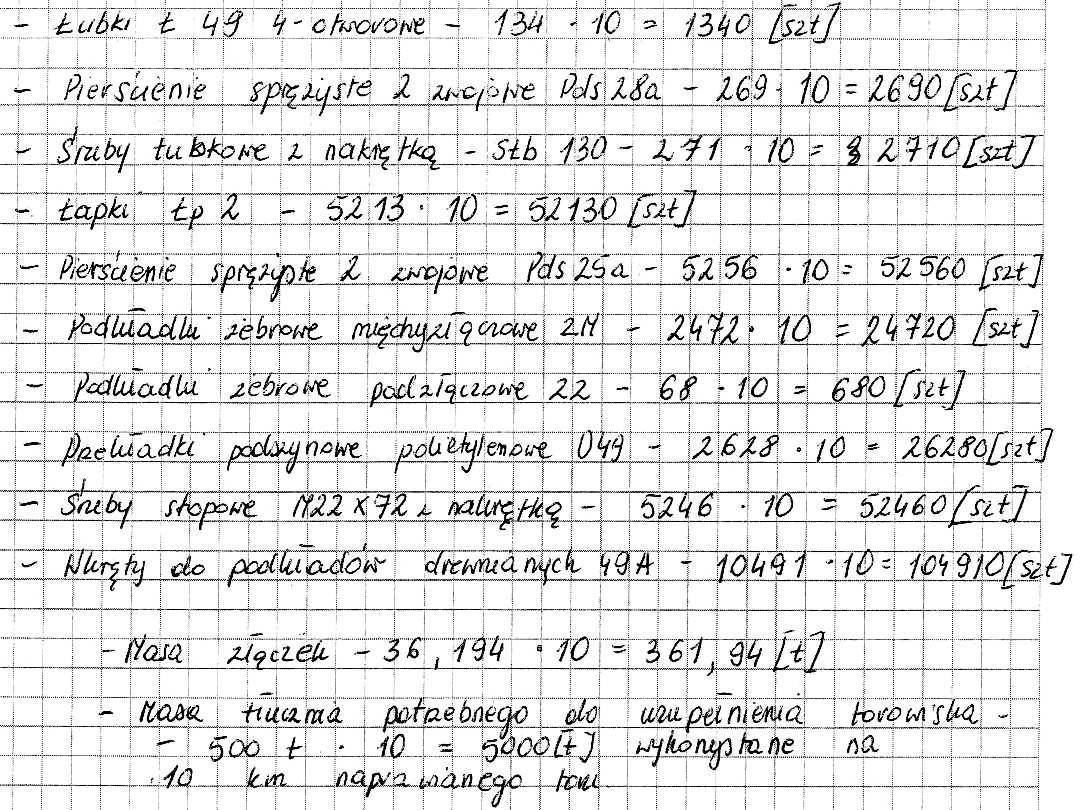 - Łubki Ł 49 4-otworowe - 134 · 10 = 1340 [szt]
- Pierścienie sprężyste 2 zwojowe Pds 28a - 269 · 10 = 2690 [szt]
- Śruby łubkowe z nakrętką - Stb 130 - 271 · 10 = 2710 [szt]
- Łapki Łp 2 - 5213 · 10 = 52130 [szt]
- Pierścienie sprężyste 2 zwojowe Pds 25a - 5256 · 10 = 52560 [szt]
- Podkładki żebrowe międzyzłączowe ŻM - 2472 · 10 = 24720 [szt]
- Podkładki żebrowe podzłączowe ŻŻ - 68 · 10 = 680 [szt]
- Przekładki podszynowe polietylenowe U49 - 2628 · 10 = 26280 [szt]
- Śruby stopowe M22 x 72 z nakrętką - 5246 · 10 = 52460 [szt]
- Wkręty do podkładów drewnianych 49A - 10491 · 10 = 104910 [szt]
- Masa złączek - 36,194 · 10 = 361,94 [t]
- Masa tłucznia potrzebnego do uzupełnienia torowiska -
- 500 t · 10 = 5000 [t] wykorzystane na
10 km naprawianego toru